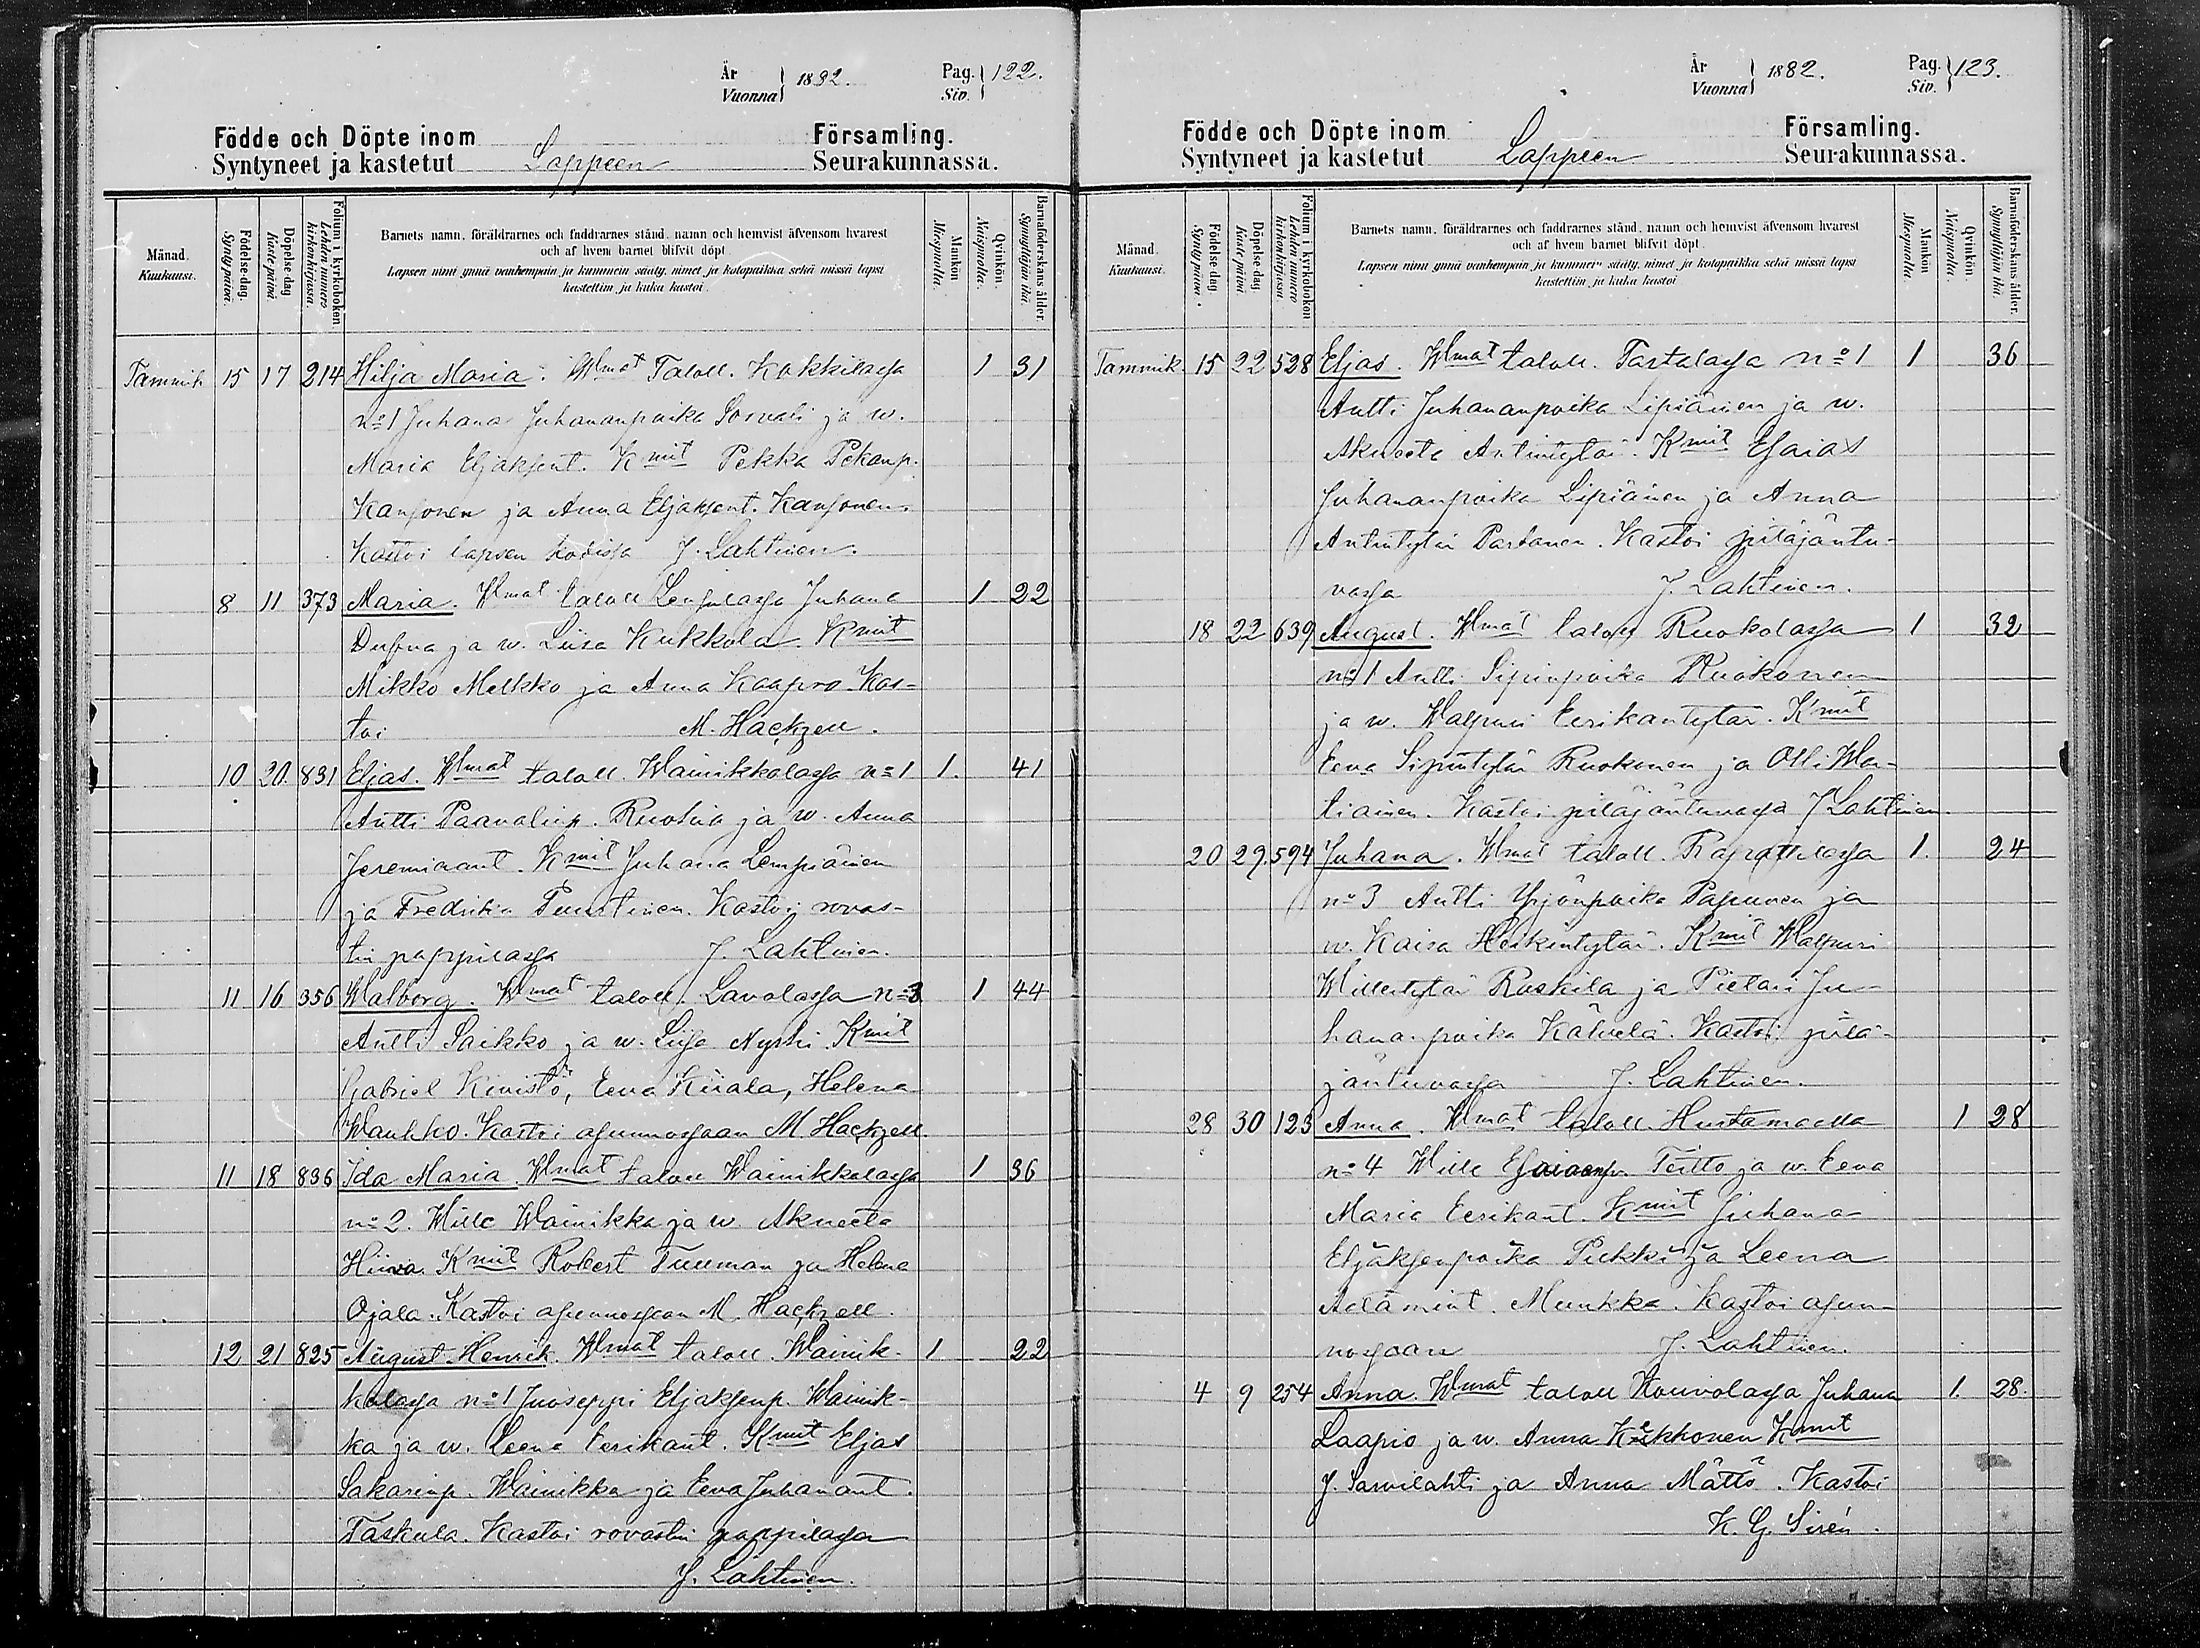 År
Vuonna } 1882.
Pag.
Siv. } 122.
Födde och Döpte inom
Syntyneet ja kastetut
Lappeen
Församling.
Seurakunnassa.
Månad.
Kuukausi.
Födelse dag.
Synty päivä.
Döpelse dag
Kaste päivä.
Folium i kyrkoboken
Lehden numero
kirkonkirjassa.
Barnets namn, föräldrarnes och faddrarnes stånd, namn och hemvist äfvensom hvarest
och af hvem barnet blifvit döpt.
Lapsen nimi ynnä vanhempain ja kummein sääty, nimet ja kotopaikka sekä missä lapsi
kastettiin ja kuka kastoi.
Mankön
Miespuolta.
Qvinkön.
Naispuolta.
Barnaföderskans ålder.
Synnyttäjän ikä.
Tammik 15 17 214 Hilja Maria. Wmat Taloll. Kakkilassa 1 31
n:o 1 Juhana Juhananpoika Sorvali ja w.
Maria Eljaksent. Kmit Pekka Pekanp.
Kansonen ja Anna Eljaksent. Kansonen.
Kastoi lapsen kodissa J. Lahtinen.
8 11 373 Maria. Wmat taloll Juhana 1 22
Dufva ja w. Liisa Kukkola. Kmit
Mikko Melkko ja Anna Kaapro. Kas-
toi M. Hackzell.
10 20. 831 Eljas. Wmat taloll. Wainikkalassa n:o 1 1. 41
Antti Paavalinp. Ruotsia ja w. Anna
Jeremiaant. Kmit Juhana Lempiäinen
ja Fredrika Puustinen. Kastoi rovas-
tin pappilassa J. Lahtinen.
11 16 356 Walborg. Wmat taloll. Lavolassa n:o 3 1 44
Antti Saikko ja w. Liisa Kmit
Gabriel Kivistö, Eeva Kiiala, Helena
Wauhko. Kastoi asunnossaan M Hackzell.
11 18 836 Ida Maria. Wmat taloll Wainikkalassa 1 36
n:o 2. Wille Wainikka ja w Akneeta
Hiiva. Kmit Robert Tuuman ja Helena
Ojala. Kastoi asunnossaan M. Hackzell.
12 21 825 August Henrik. Wmat taloll. Wainik- 1 22
kalassa n:o 1 Juoseppi Eljaksenp. Wainik-
ka ja w. Leena Eerikant. Kmit Eljas
Sakarinp. Wainikka ja Eeva Juhanant.
Taskula. Kastoi rovastin pappilassa
J. Lahtinen.
År
Vuonna } 1882.
Pag.
Siv. } 123.
Födde och Döpte inom
Syntyneet ja kastetut
Lappeen
Församling.
Seurakunnassa.
Månad.
Kuukausi.
Födelse dag
Synty päivä.
Döpelse dag
Kaste päivä
Folium i kyrkoboken
Lehden numero
kirkonkirjassa.
Barnets namn, föräldrarnes och faddrarnes stånd, namn och hemvist äfvensom hvarest
och af hvem barnet blifvit döpt.
Lapsen nimi ynnä vanhempain ja kummein sääty, nimet ja kotopaikka sekä missä lapsi
kastettiin ja kuka kastoi
Mankön
Miespuolta.
Qvinkön.
Naispuolta.
Barnaföderskans ålder.
Synnyttäjän ikä.
Tammik. 15 22 528 Eljas. Wmat taloll. Partalassa n:o 1 1 36
Antti Juhananpoika Lipiäinen ja w.
Akneeta Antintytär. Kmit Esaias
Juhananpoika Lipiäinen ja Anna
Antintytär Partanen. Kastoi pitäjäntu-
vassa J. Lahtinen.
18 22 639 August. Wmat taloll Ruokolassa 1 32
n:o 1 Antti Sipinpoika Ruokonen
ja w. Walpuri Eerikantytär. Kmit
Eeva Sipintytär Ruokonen ja Olli War-
tiainen. Kastoi pitäjäntuvassa J Lahtinen
20 29. 594 Juhana. Wmat taloll. Rapattilassa 1. 24
n:o 3 Antti Yrjönpoika Papunen ja
w. Kaisa Heikintytär. Kmit Walpuri
Willentytär Raskila ja Pietari Ju-
hananpoika Kälvelä. Kastoi pitä-
jäntuvassa J. Lahtinen.
28 30 123 Anna. Wmat taloll. Huntamaalla 1 28
n:o 4 Wille Esaiaanp. Teitto ja w. Eeva
Maria Eerikant. Kmit Juhana
Eljaksenpoika Pukki ja Leena
Adamint. Munkka. Kastoi asun-
nossaan J. Lahtinen.
4 9 254 Anna. Wmat taloll Kouvolassa Juhana 1. 28.
Laapio ja w. Anna Kukkonen Kmit
J. Sarvilahti ja Anna Mättö. Kastoi
K. G. Sirén.